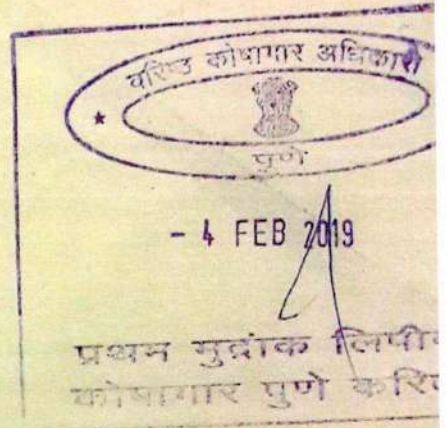 वरिष्ठ कोषागार अधिकारी
पुणे
- 4 FEB 2019
प्रथम मुद्रांक लिपी
कोषागार पुणे करि